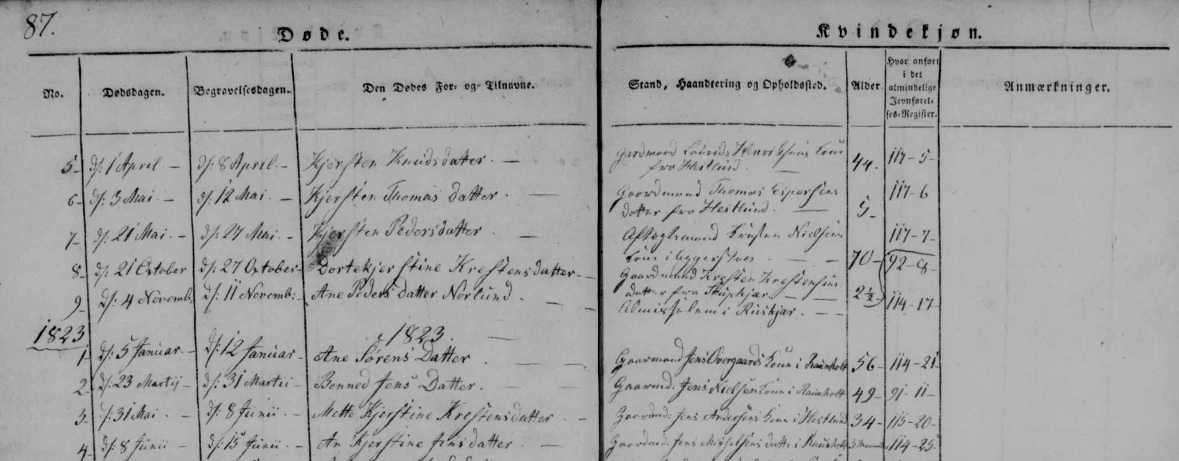 87.
Døde.
Kvindekjøn.
No. Dødsdagen. Begravelsesdagen. Den Dødes For- og Tilnavne. Stand, Haandtering og Opholdssted. Alder. Hvor anført i det almindelige Jevnførelses-Register. Anmærkninger.
5- d/: 1 April - d/: 8 April - Kjersten Knudsdatter. - Gardmand Henrichsens Kone
fra Hestlund. 44- 117-5-
6- d/: 3 Mai - d/: 12 Mai - Kjersten Thomas datter. - Gaardmand Thomas
datter fra Hestlund. - 5- 117-6
7- d/: 21 Mai - d/: 27 Mai - Kjersten Pedersdatter. - Aftægtsmand Nielsens
Kone i 70- 117-7-
8- d/: 21 October d/: 27 October - Dortekjerstine Krestensdatter - Gaardmand Kresten Krestensens
datter fra 2½- 92-8-
9- d/: 4 Novemb: d/: 11 Novemb: - Ane Peders datter Norlund - Almisselem i 114-17-
1823 1823.
1- d/: 5 Januar - d/: 12 Januar - Ane Sørens Datter - Gaarmand Jens Overgaards Kone i 56- 114-21-
2- d/: 23 Martij - d/: 31 Martii - Benned Jens Datter. - Gaarmd: Jens Nielsen Kone i 49- 91-11-
3- d/: 31 Mai - d/: 8 Junii - Mette Kjerstine Krestensdatter - Jens Andersens Kone i Hestlund 34- 115-20-
4- d/: 8 Junii - d/: 15 Junii - An Kjerstine Jensdatter - Jens datter i 114-25-